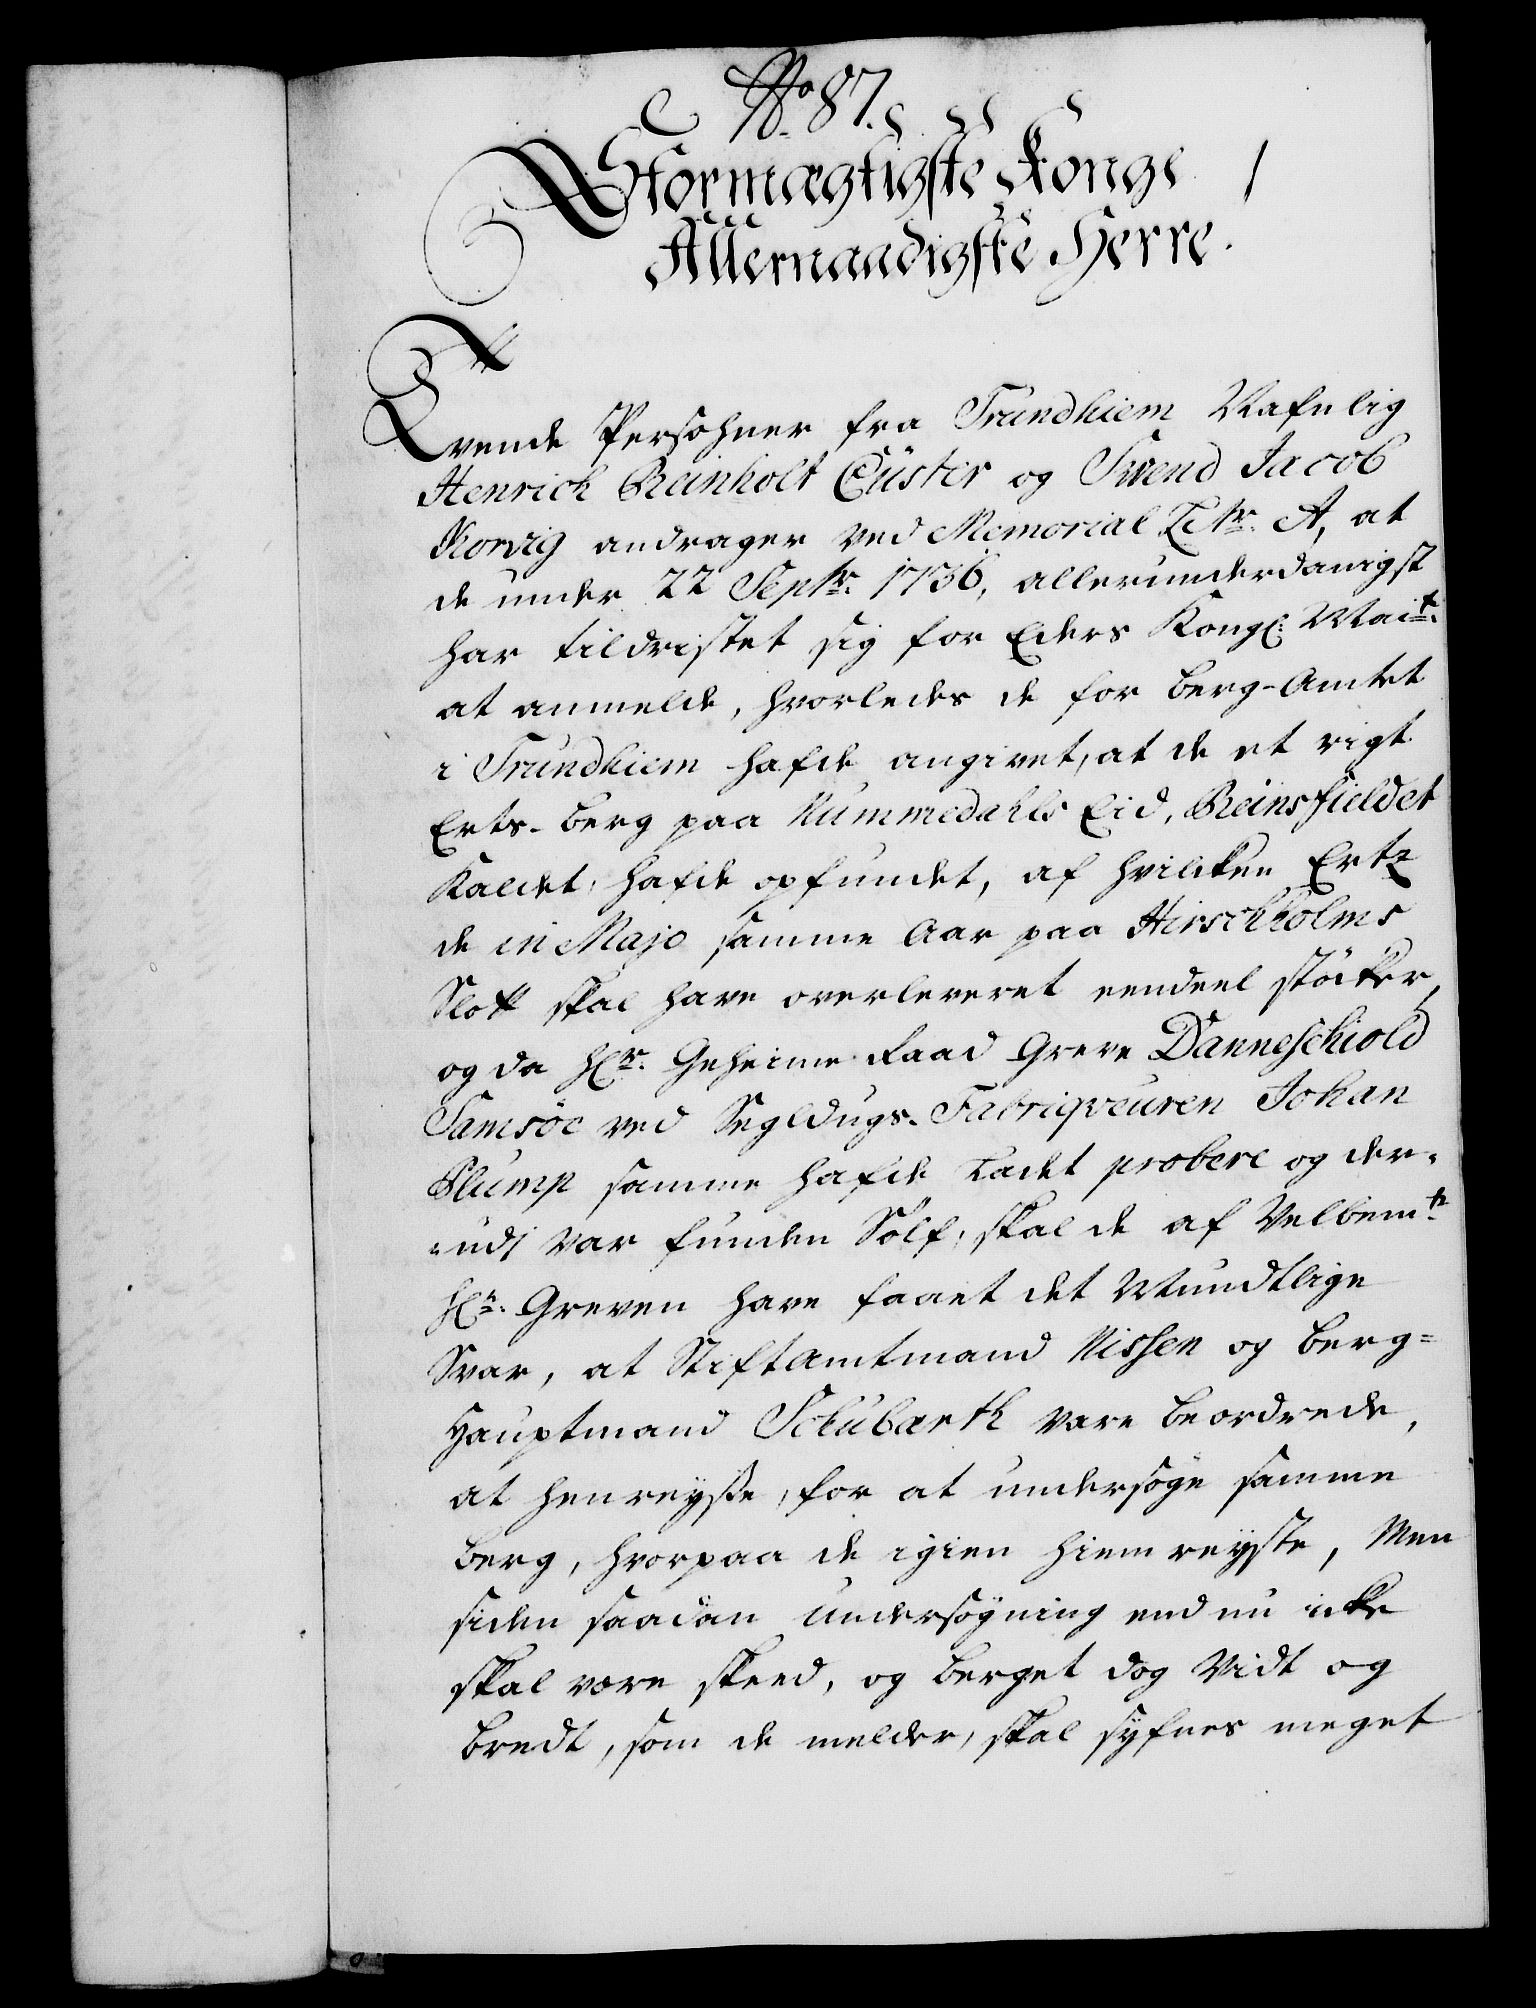 No 87.
Stormægtigste Konge
Allernaadigste Herre.
Tvende Persohner fra Trundhiem Nafnlig
Henrich Reinholt Cüster og Svend Jacob
Korvig andrager ved Memorial Litr. A, at
de under 22 Septr. 1736, allerunderdanigst
har tildristet sig for Eders Kongl: Mait.
at anmelde, hvorledes de for Berg-Amtet
i Trundhiem hafde angivet, at de et rigt
Erts-berg paa Nummedahls Eid, Reinsfieldet
Kaldet, hafde opfundet, af hvilcken Ertz
de in Majo samme Aar paa Hirschholms
Slott skal have overleveret eendeel stöcker,
og da Hr. Geheime Raad Greve Danneschiold
Samsöe ved Segldugs-Fabriqveuren Johan
Plump samme hafde ladet probere og der-
udj var funden Sölf, skal de af Velbemte.
Hr. Greven have faaet det Mundtlige
Svar, at Stiftamtmand Nissen og Berg=
Hauptmand Schubarth vare beordrede,
at henreyse, for at undersöge samme
berg, hvorpaa de igien hiemreyste, Men
siden saadan undersögning end nu icke
skal være skeed, og berget dog Vidt og
bredt, som de melder, skal syfnes meget